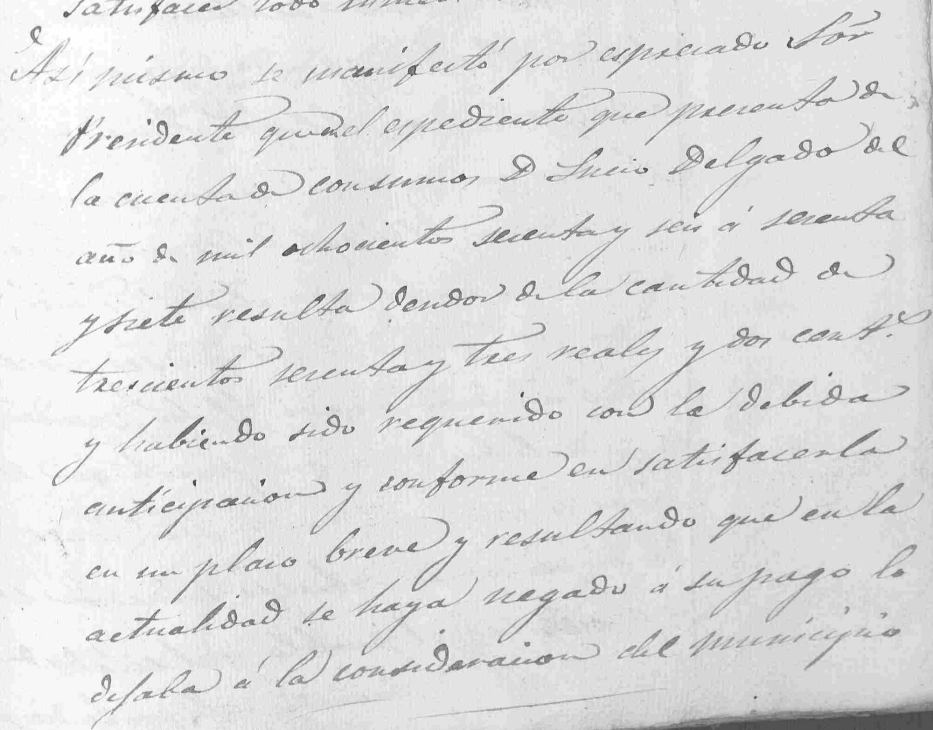 satisfacer todo
Así mismo se manifestó por espresado Sõr
Presidente que en el espediente que presenta de
la cuenta de consumos D Lucio Delgado del
año de mil ochocientos sesenta y seis á sesenta
y siete resulta deudor de la cantidad de
trescientos sesenta y tres reales y dos centº
y habiendo sido requerido con la debida
anticipacion y conforme en satisfacerla
en un plazo breve y resultando que en la
actualidad se haya negado á su pago lo
dejaba á la consideracion del municipio